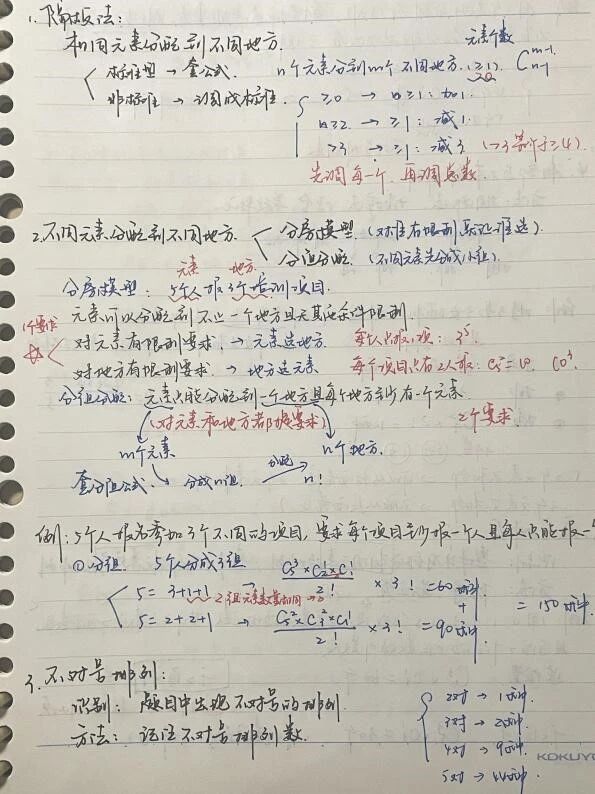 1. 隔板法：
相同元素分配到不同地方.
元素个数
标准型 → 套公式. n个元素分到m个不同地方 (≥1) C_{n-1}^{m-1}.
非标准 → 调成标准 ≥0 → ≥1：加1.
≥2 → ≥1：减1.
>3 → ≥1：减3 (>3等价于≥4).
先调每一个, 再调总数.
2. 不同元素分配到不同地方. 分房模型.
分组分配. (不同元素先分成小组).
元素 地方
分房模型：5个人报3个培训项目.
元素可以分配到不止一个地方且无其他条件限制
1个要求
对元素有限制要求. → 元素选地方. 每人只报1项：3⁵
对地方有限制要求. → 地方选元素 每个项目只有2人报：C₅²=10. 10³.
分组分配：元素只能分配到一个地方且每个地方至少有一个元素.
(对元素和地方都有要求) 2个要求
m个元素 n个地方.
套分组公式. 分成n组 分配 n！
例：5个人报名参加3个不同的项目, 要求每个项目至少报一个人且每人只能报一
①分组. 5个人分成3组
5=3+1+1 → C₅³×C₂¹×C₁¹ / 2！ ×3！=60种
2组元素数量相同
+ =150种.
5=2+2+1 → C₅²×C₃²×C₁¹ / 2！ ×3！=90种
3. 不对号排列：
识别：题目中出现不对号的排列
方法：记住不对号排列数.
2对 → 1种.
3对 → 2种.
4对 → 9种.
5对 → 44种.
KOKUYO